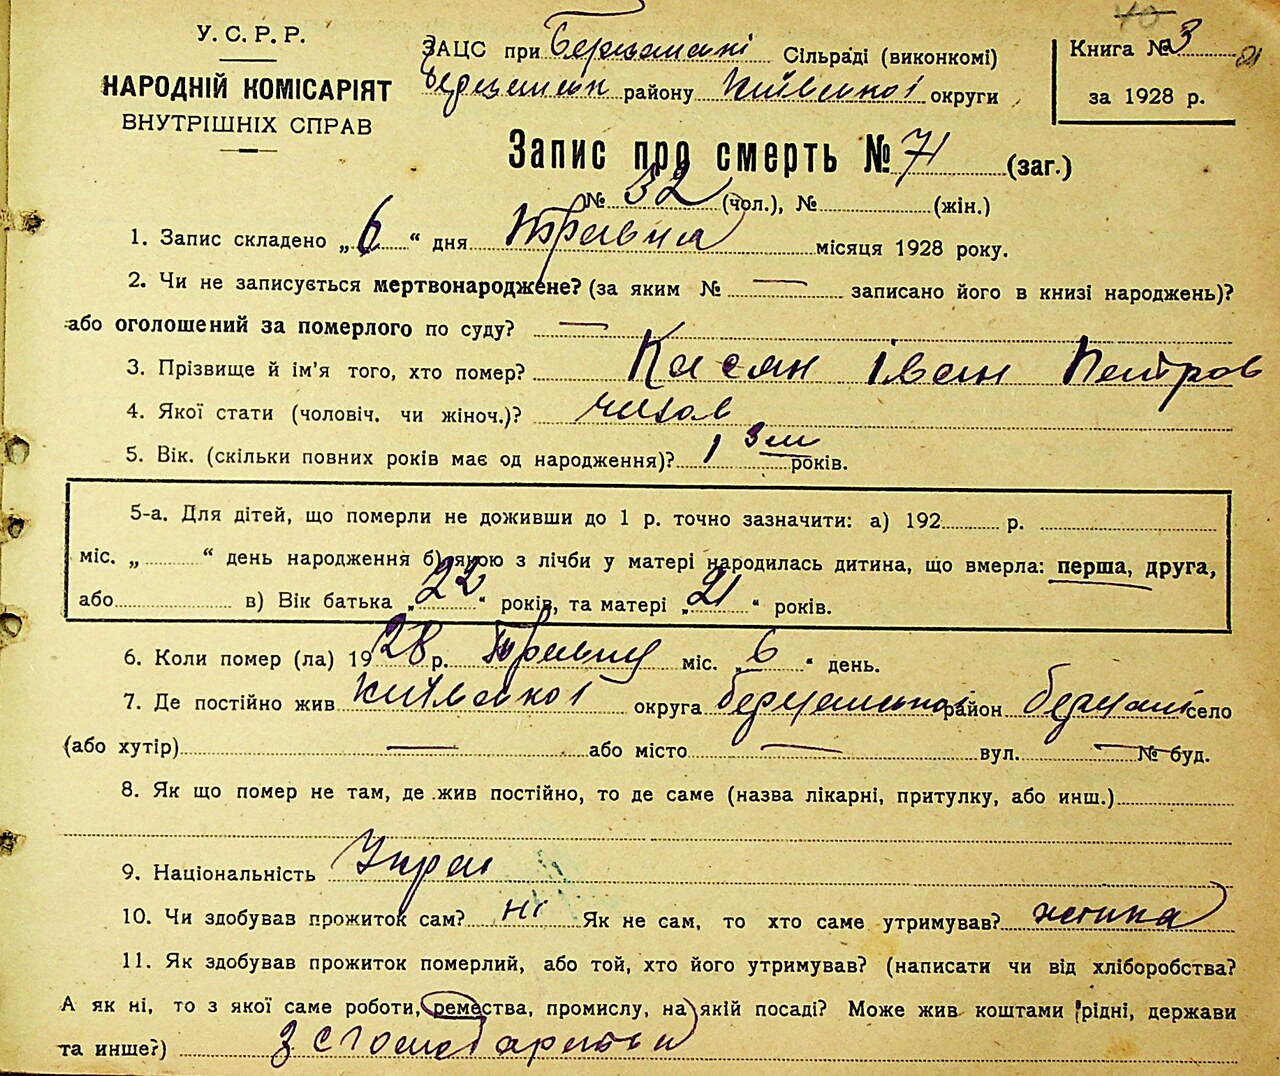 У. С. Р. Р.
НАРОДНІЙ КОМІСАРІЯТ
ВНУТРІШНІХ СПРАВ
ЗАЦС при Сільраді (виконкомі)
району Київської округи
Книга № 3
за 1928 р.
Запис про смерть № 71 (заг.)
№ 32 (чол.), № (жін.)
1. Запис складено „6“ дня Травня місяця 1928 року.
2. Чи не записується мертвонароджене? (за яким № — записано його в книзі народжень)?
або оголошений за померлого по суду? —
3. Прізвище й ім'я того, хто помер? Касян Іван Петров
4. Якої стати (чоловіч. чи жіноч.)? чолов
5. Вік. (скільки повних років має од народження)? 1 3 м років.
5-а. Для дітей, що померли не доживши до 1 р. точно зазначити: а) 192 р.
міс. „ “ день народження б) якою з лічби у матері народилась дитина, що вмерла: перша, друга,
або в) Вік батька „22“ років, та матері „21“ років.
6. Коли помер (ла) 1928 р. Травня міс. „6“ день.
7. Де постійно жив Київської округа район село
(або хутір) — або місто — вул. — № буд.
8. Як що помер не там, де жив постійно, то де саме (назва лікарні, притулку, або инш.)
9. Національність Укра
10. Чи здобував прожиток сам? ні Як не сам, то хто саме утримував?
11. Як здобував прожиток померлий, або той, хто його утримував? (написати чи від хліборобства?
А як ні, то з якої саме роботи, ремества, промислу, на якій посаді? Може жив коштами рідні, держави
та инше?) з господарства